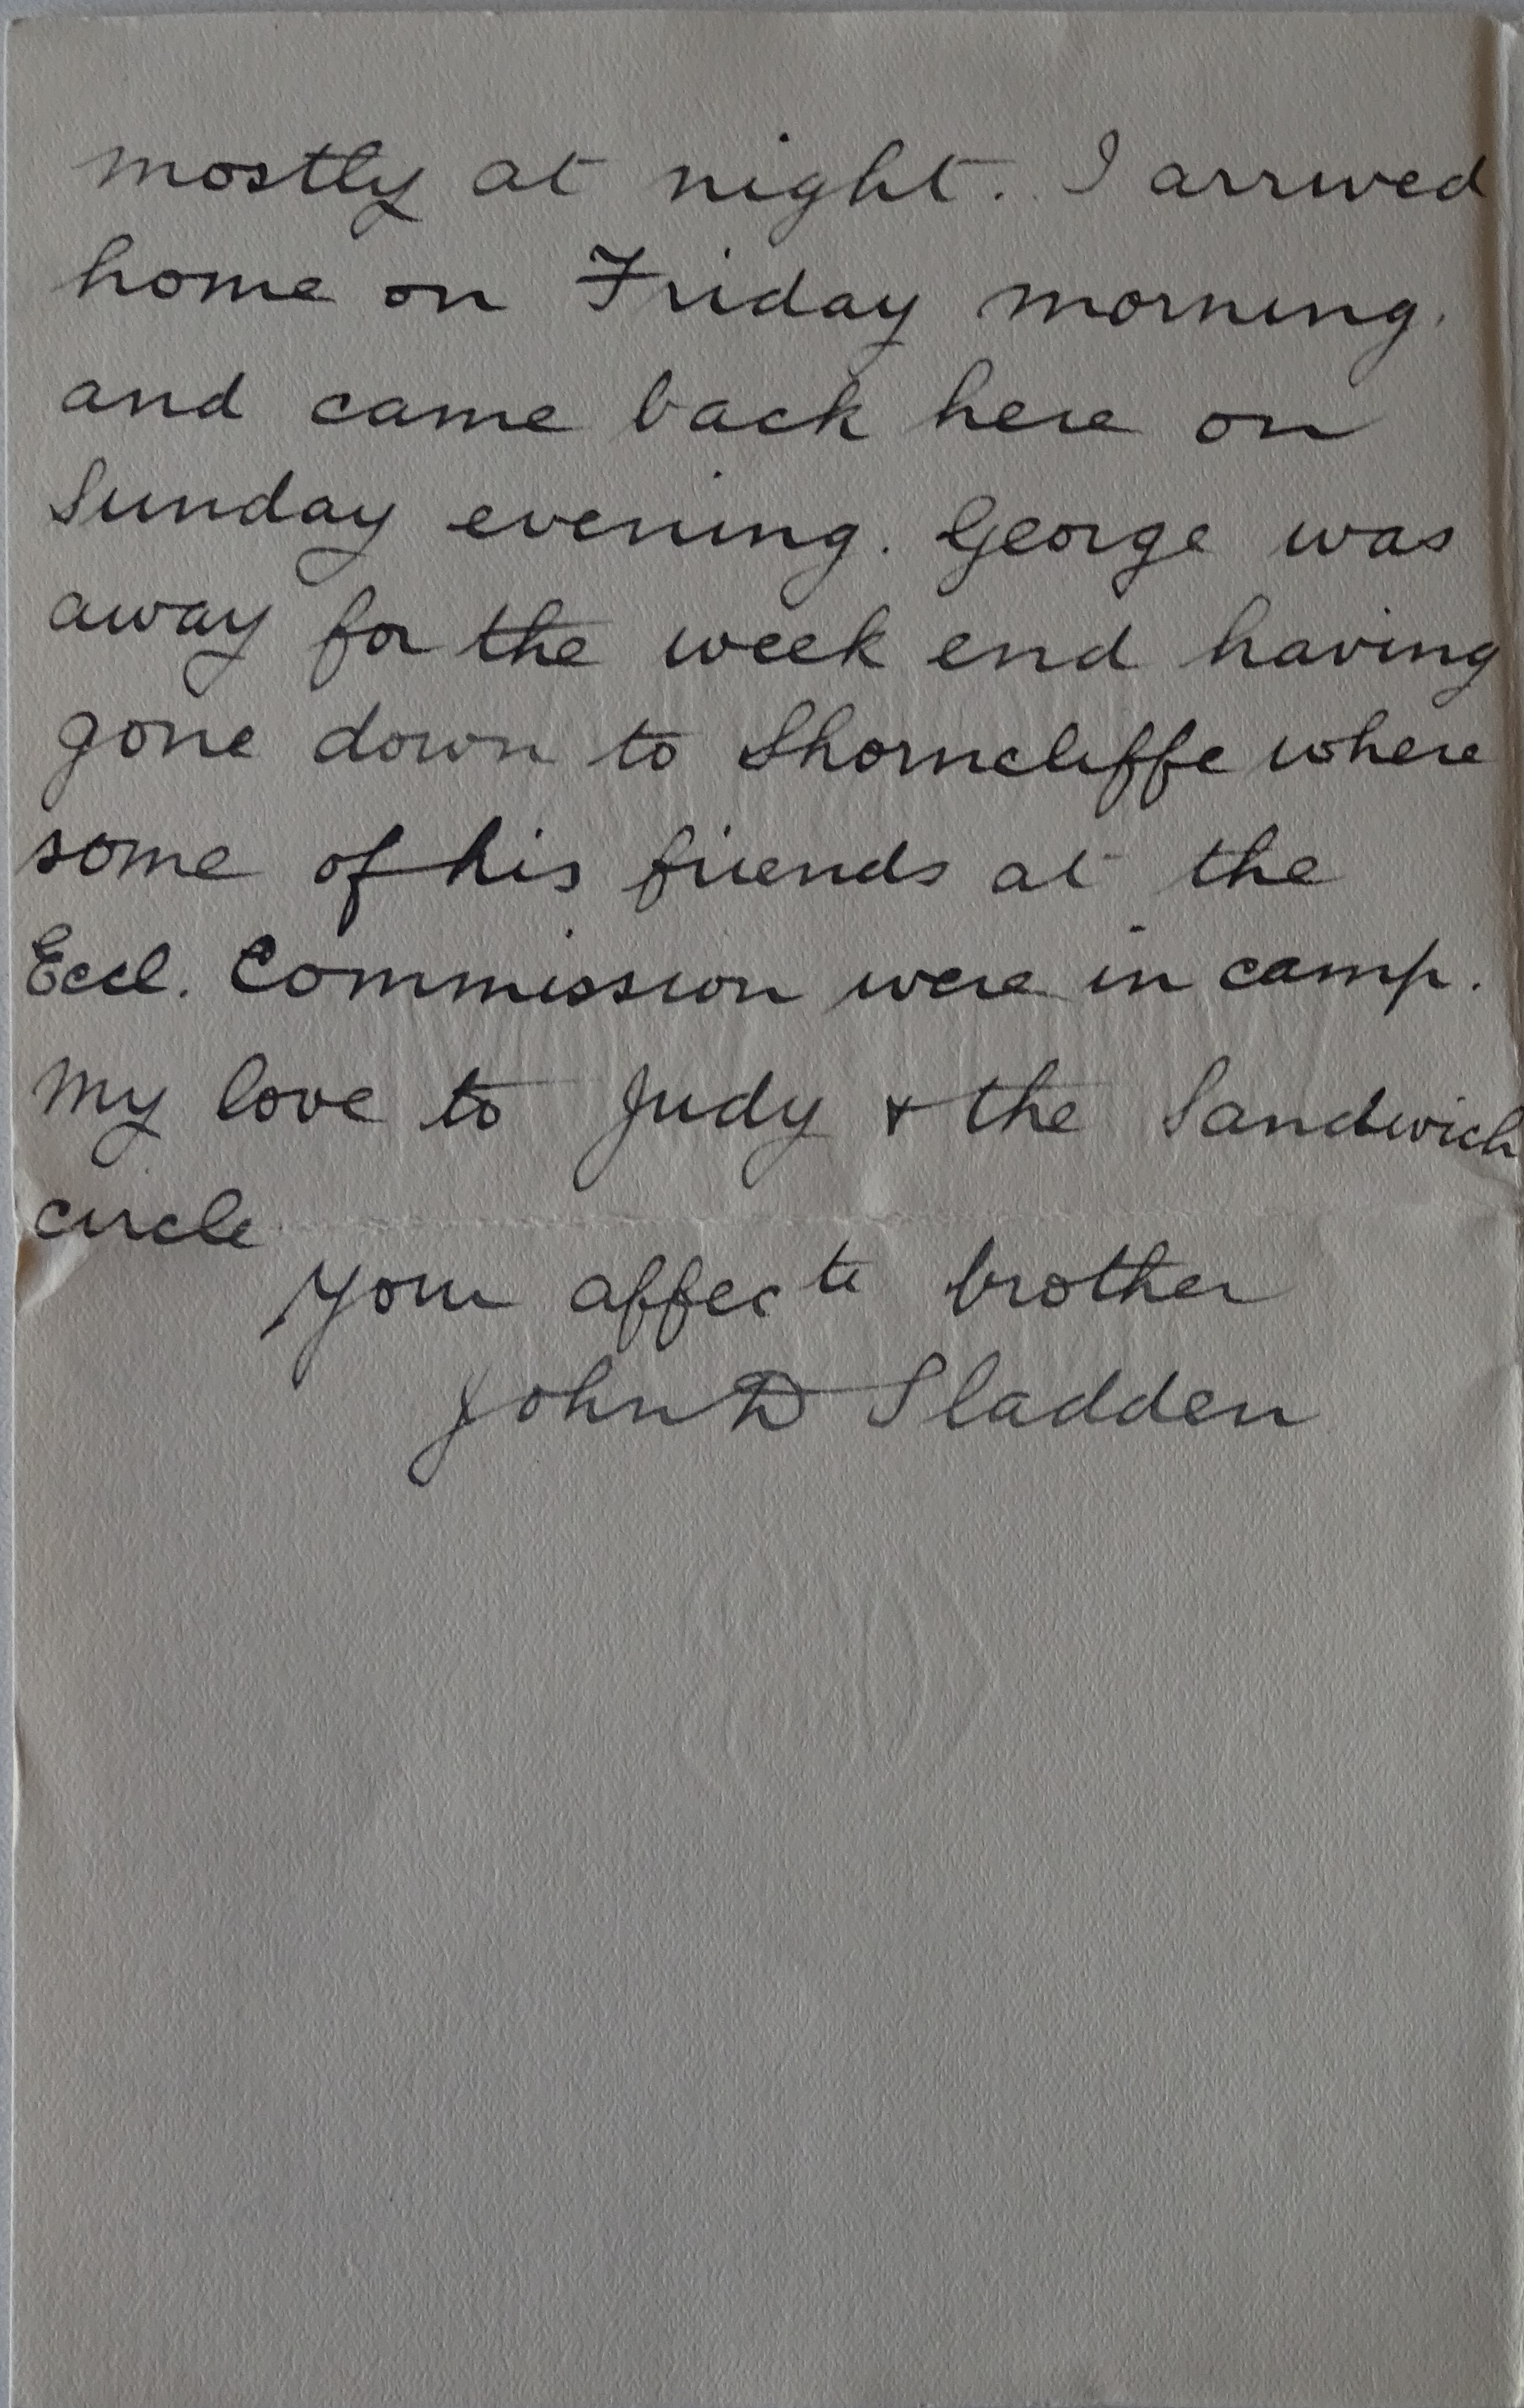 mostly at night. I arrived
home on Friday morning.
and came back here on
Sunday evening. George was
away for the week end having
gone down to Shorncliffe where
some of his friends at the
Eccl. Commission were in camp.
My love to Judy & the Sandwich
circle
Your affecte brother
John D Sladden